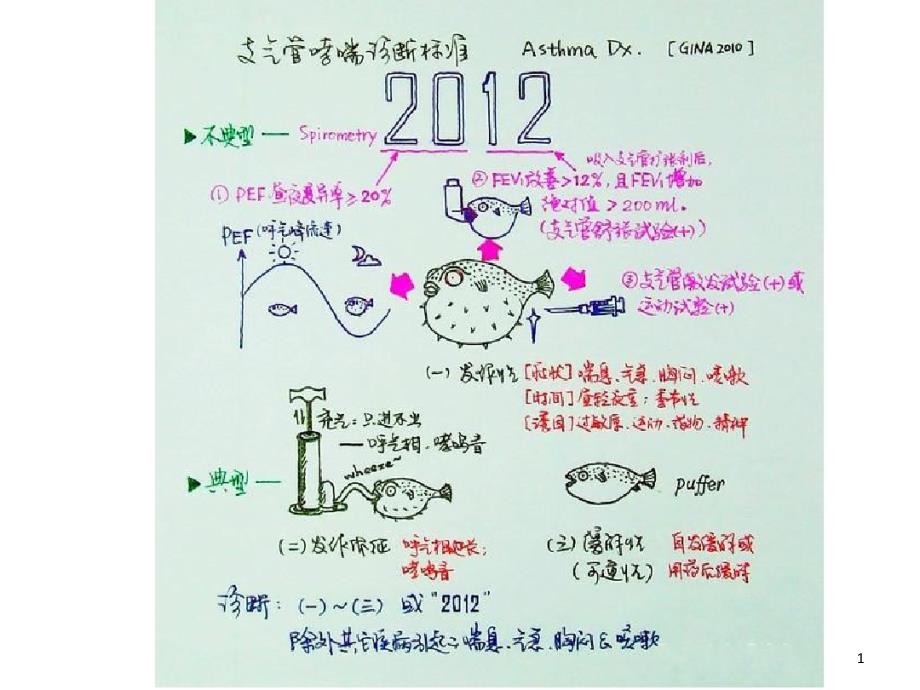 支气管哮喘诊断标准 Asthma Dx. [GINA 2010]
2012
▶不典型 — Spirometry
吸入支气管扩张剂后,
① PEF昼夜变异率≥20%
② FEV₁改善>12%, 且FEV₁增加
绝对值 > 200 ml.
(支气管舒张试验(+))
PEF (呼气峰流速)
③ 支气管激发试验(+)或
运动试验(+)
(一) 发作性 [症状] 喘息、气急、胸闷、咳嗽
[时间] 夜轻夜重; 季节性
[诱因] 过敏原、运动、药物、精神
充气: 只进不出
— 呼气相、哮鸣音
wheeze~
▶典型 —
puffer
(二) 发作体征 呼气相延长;
哮鸣音
(三) 缓解性 自发缓解或
(可逆性) 用药后缓解
诊断: (一)~(三) 或 "2012"
除外其它疾病引起之喘息、气急、胸闷及咳嗽
1